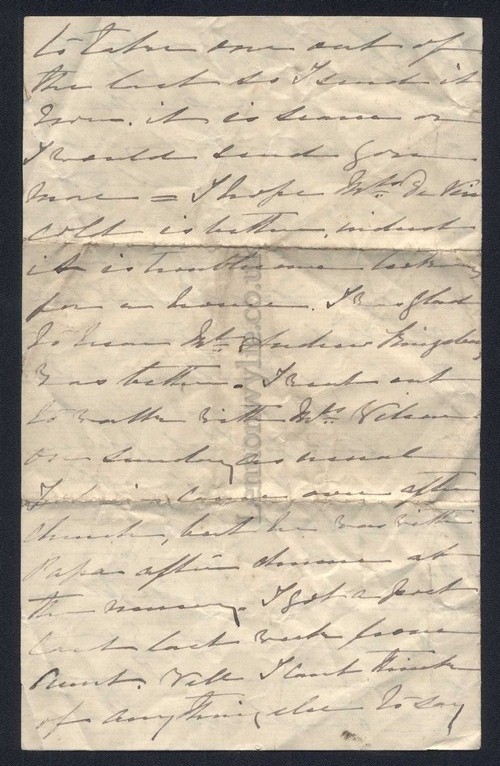 to take one out of
the last so I send it
now. it is scarce or
I would send you
more = I hope Mrs De Vin
cold is better, indeed
it is troublesome looking
for a house. I was glad
to hear Mr Andrew Kingsbury
was better. I went out
to walk with Mrs Wilson
on sunday as usual
came over after
church, but he was with
Papa after dinner at
the nursery. I got a post
card last week from
Aunt. Well I cant think
of anything else to say